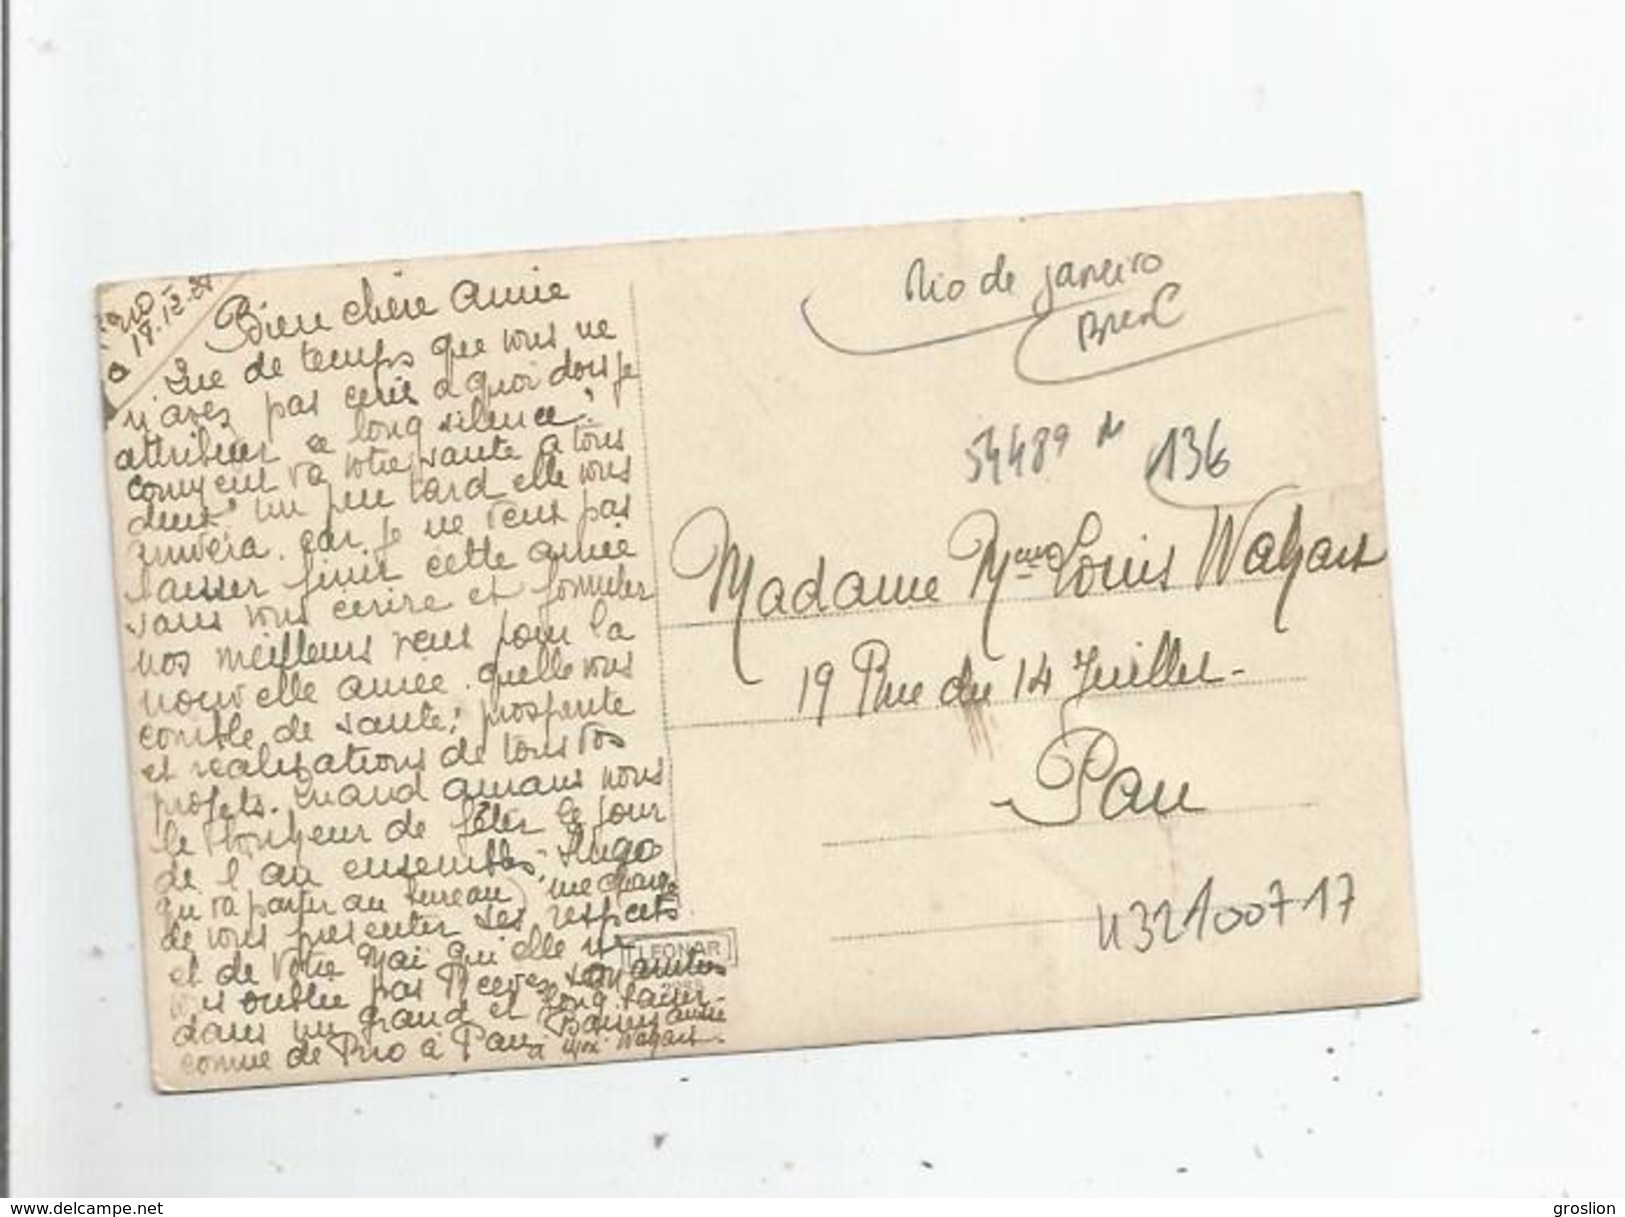 Rio
17.12.28
Bien chère amie
Que de temps que vous ne
m'avez pas ecrit a quoi dois je
attribuer ce long silence?
comment va votre sante a tous
deux? un peu tard elle vous
arrivera. car je ne veux pas
laisser finir cette année
sans vous ecrire et formuler
nos meilleurs vœux pour la
nouvelle année. quelle vous
comble de sante; prosperite
et realisations de tous vos
projets. Quand aurons nous
le bonheur de fêter le jour
de l'an ensemble; Hugo
qui va partir au bureau me charge
de vous presenter ses respects
et de votre Mari qu'elle ne
vous oublie pas Recevez
dans un grand et long baiser
comme de Rio à Pau
a Mr Wagart.
LEONAR
Rio de janeiro
Bresil
54489 136
Madame Mme Louis Wagart
19 Rue du 14 Juillet -
Pau
4321007-17
delcampe.net
groslion